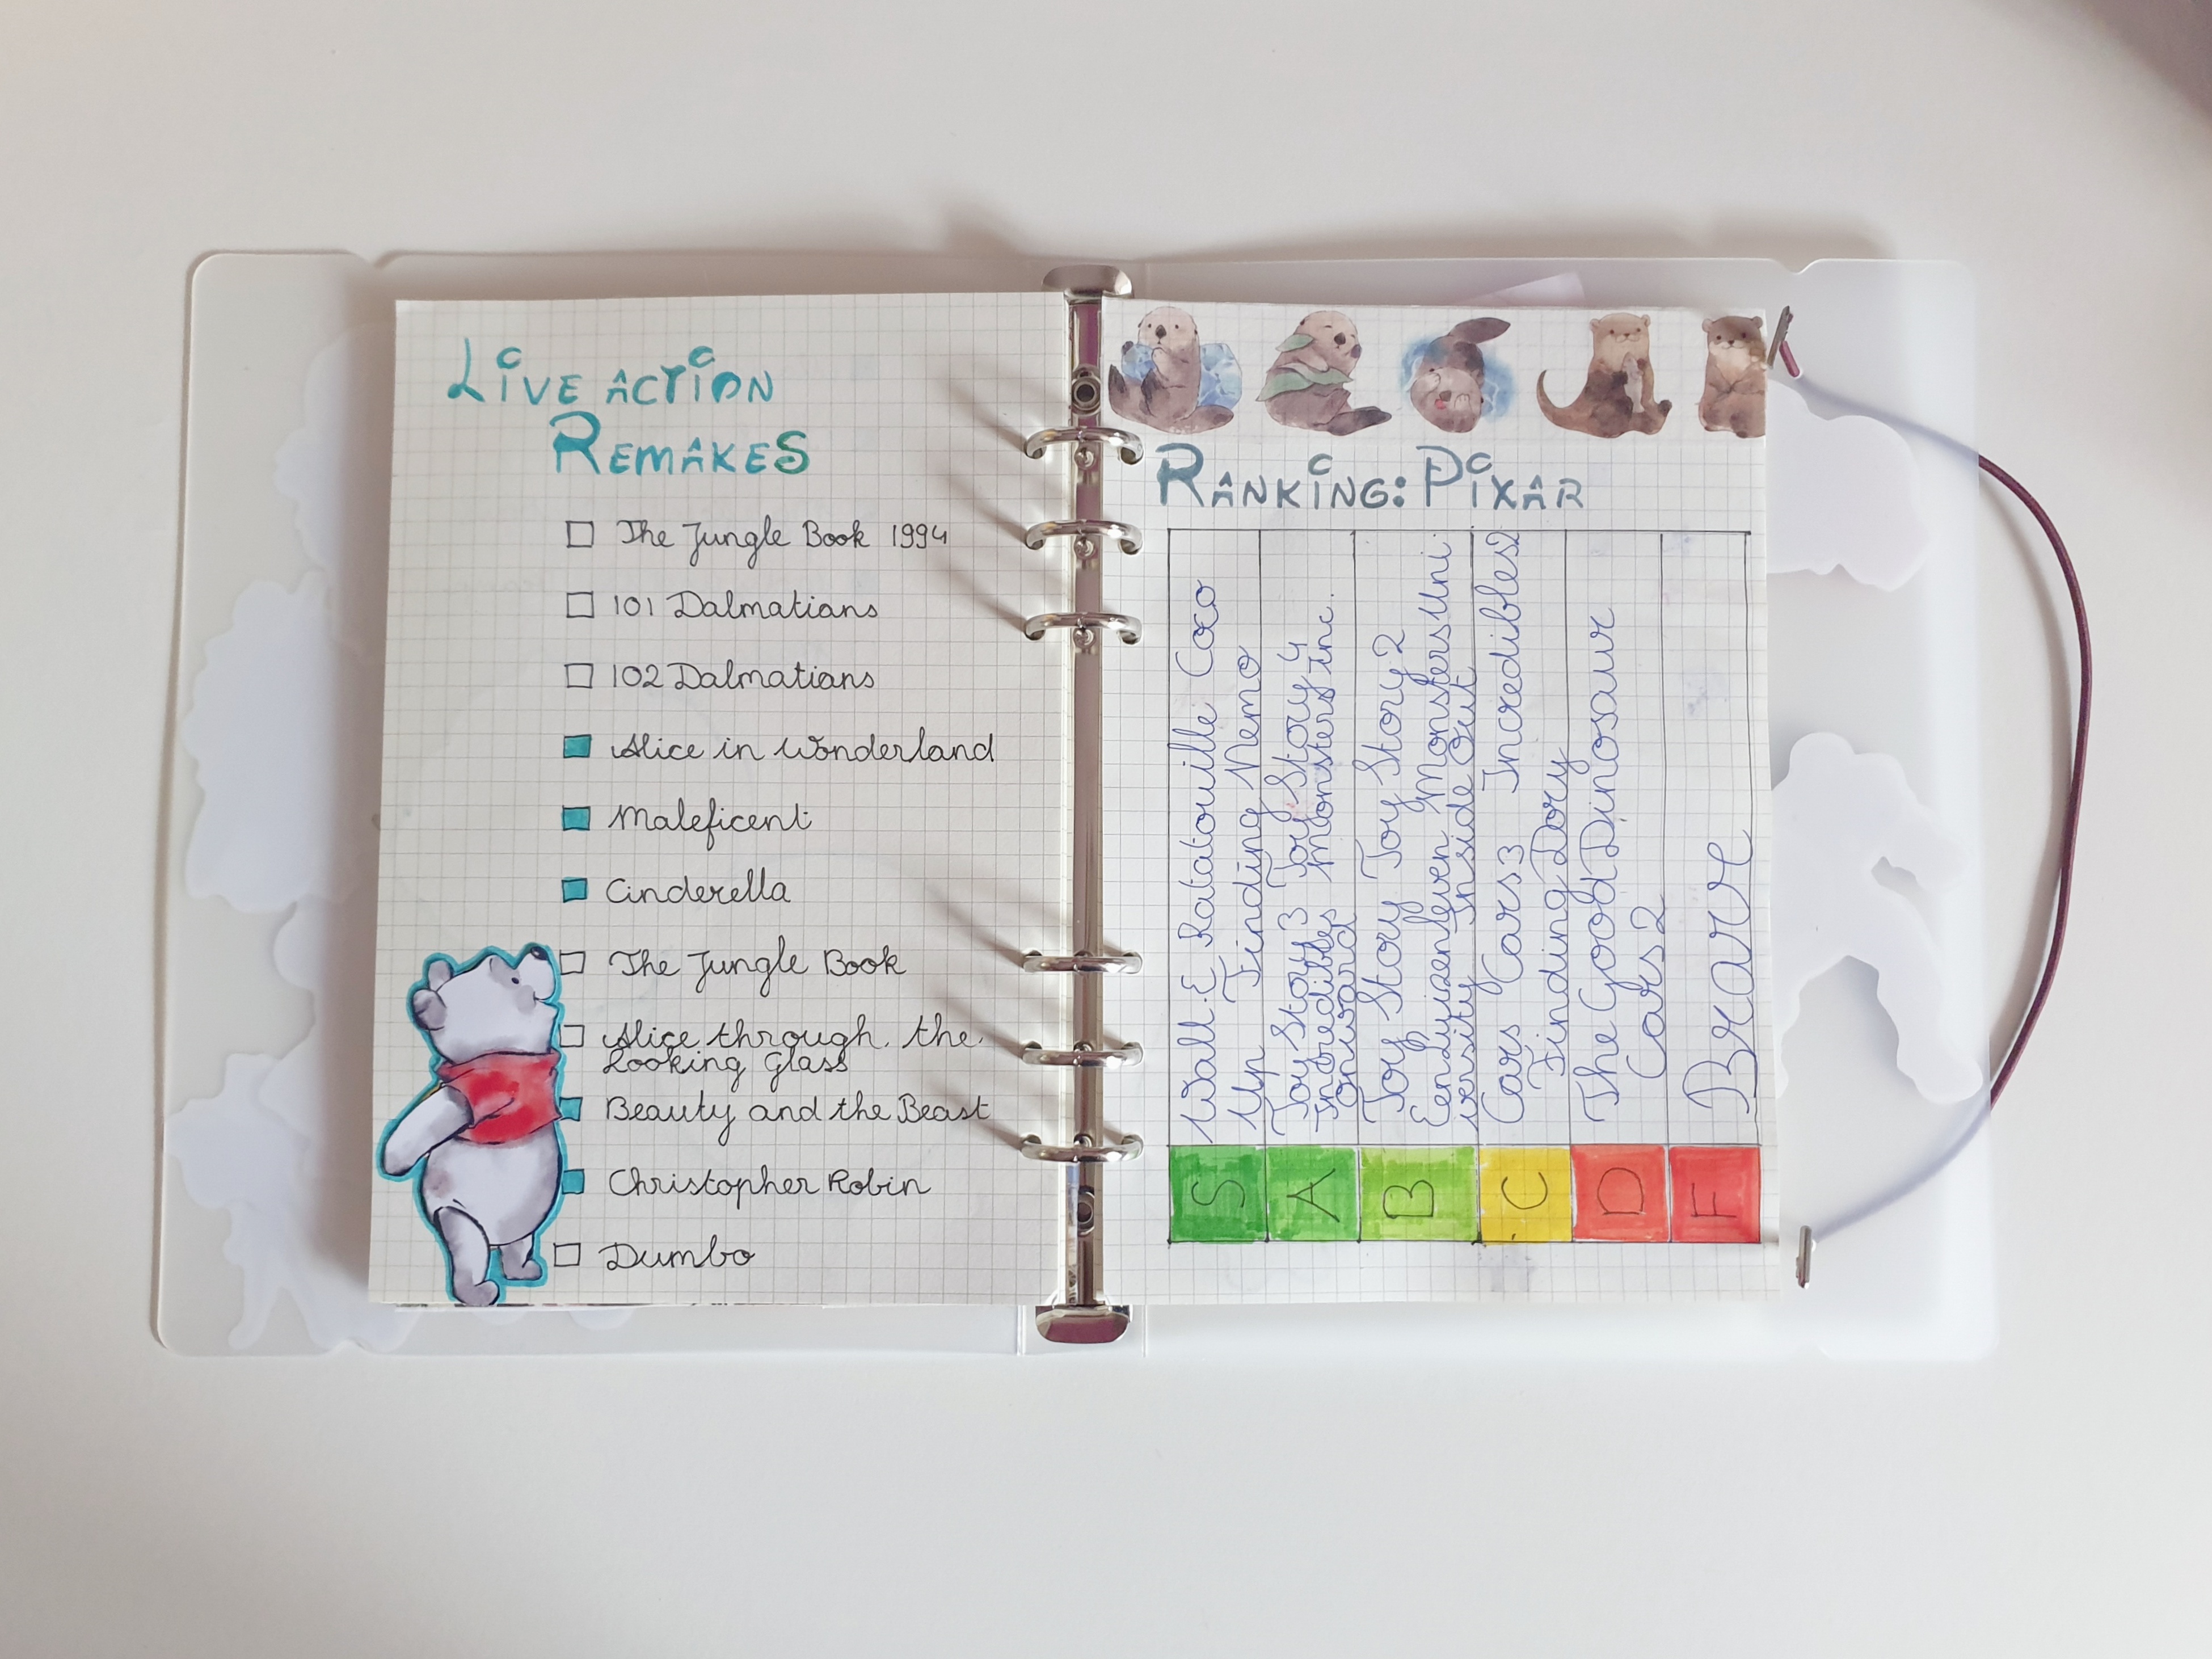 Live action
Remakes
The Jungle Book 1994
101 Dalmatians
102 Dalmatians
Alice in Wonderland
Maleficent
Cinderella
The Jungle Book
Alice through the
Looking Glass
Beauty and the Beast
Christopher Robin
Dumbo
Ranking: Pixar
S
Wall-E Ratatouille Coco
Up Finding Nemo
A
Toy Story 3 Toy Story 4
Incredibles Monsters Inc.
Onward
B
Toy Story Toy Story 2
Eenluizenleven Monsters Uni
versity Inside Out
C
Cars Cars 3 Incredibles 2
Finding Dory
D
The Good Dinosaur
Cars 2
F
Brave